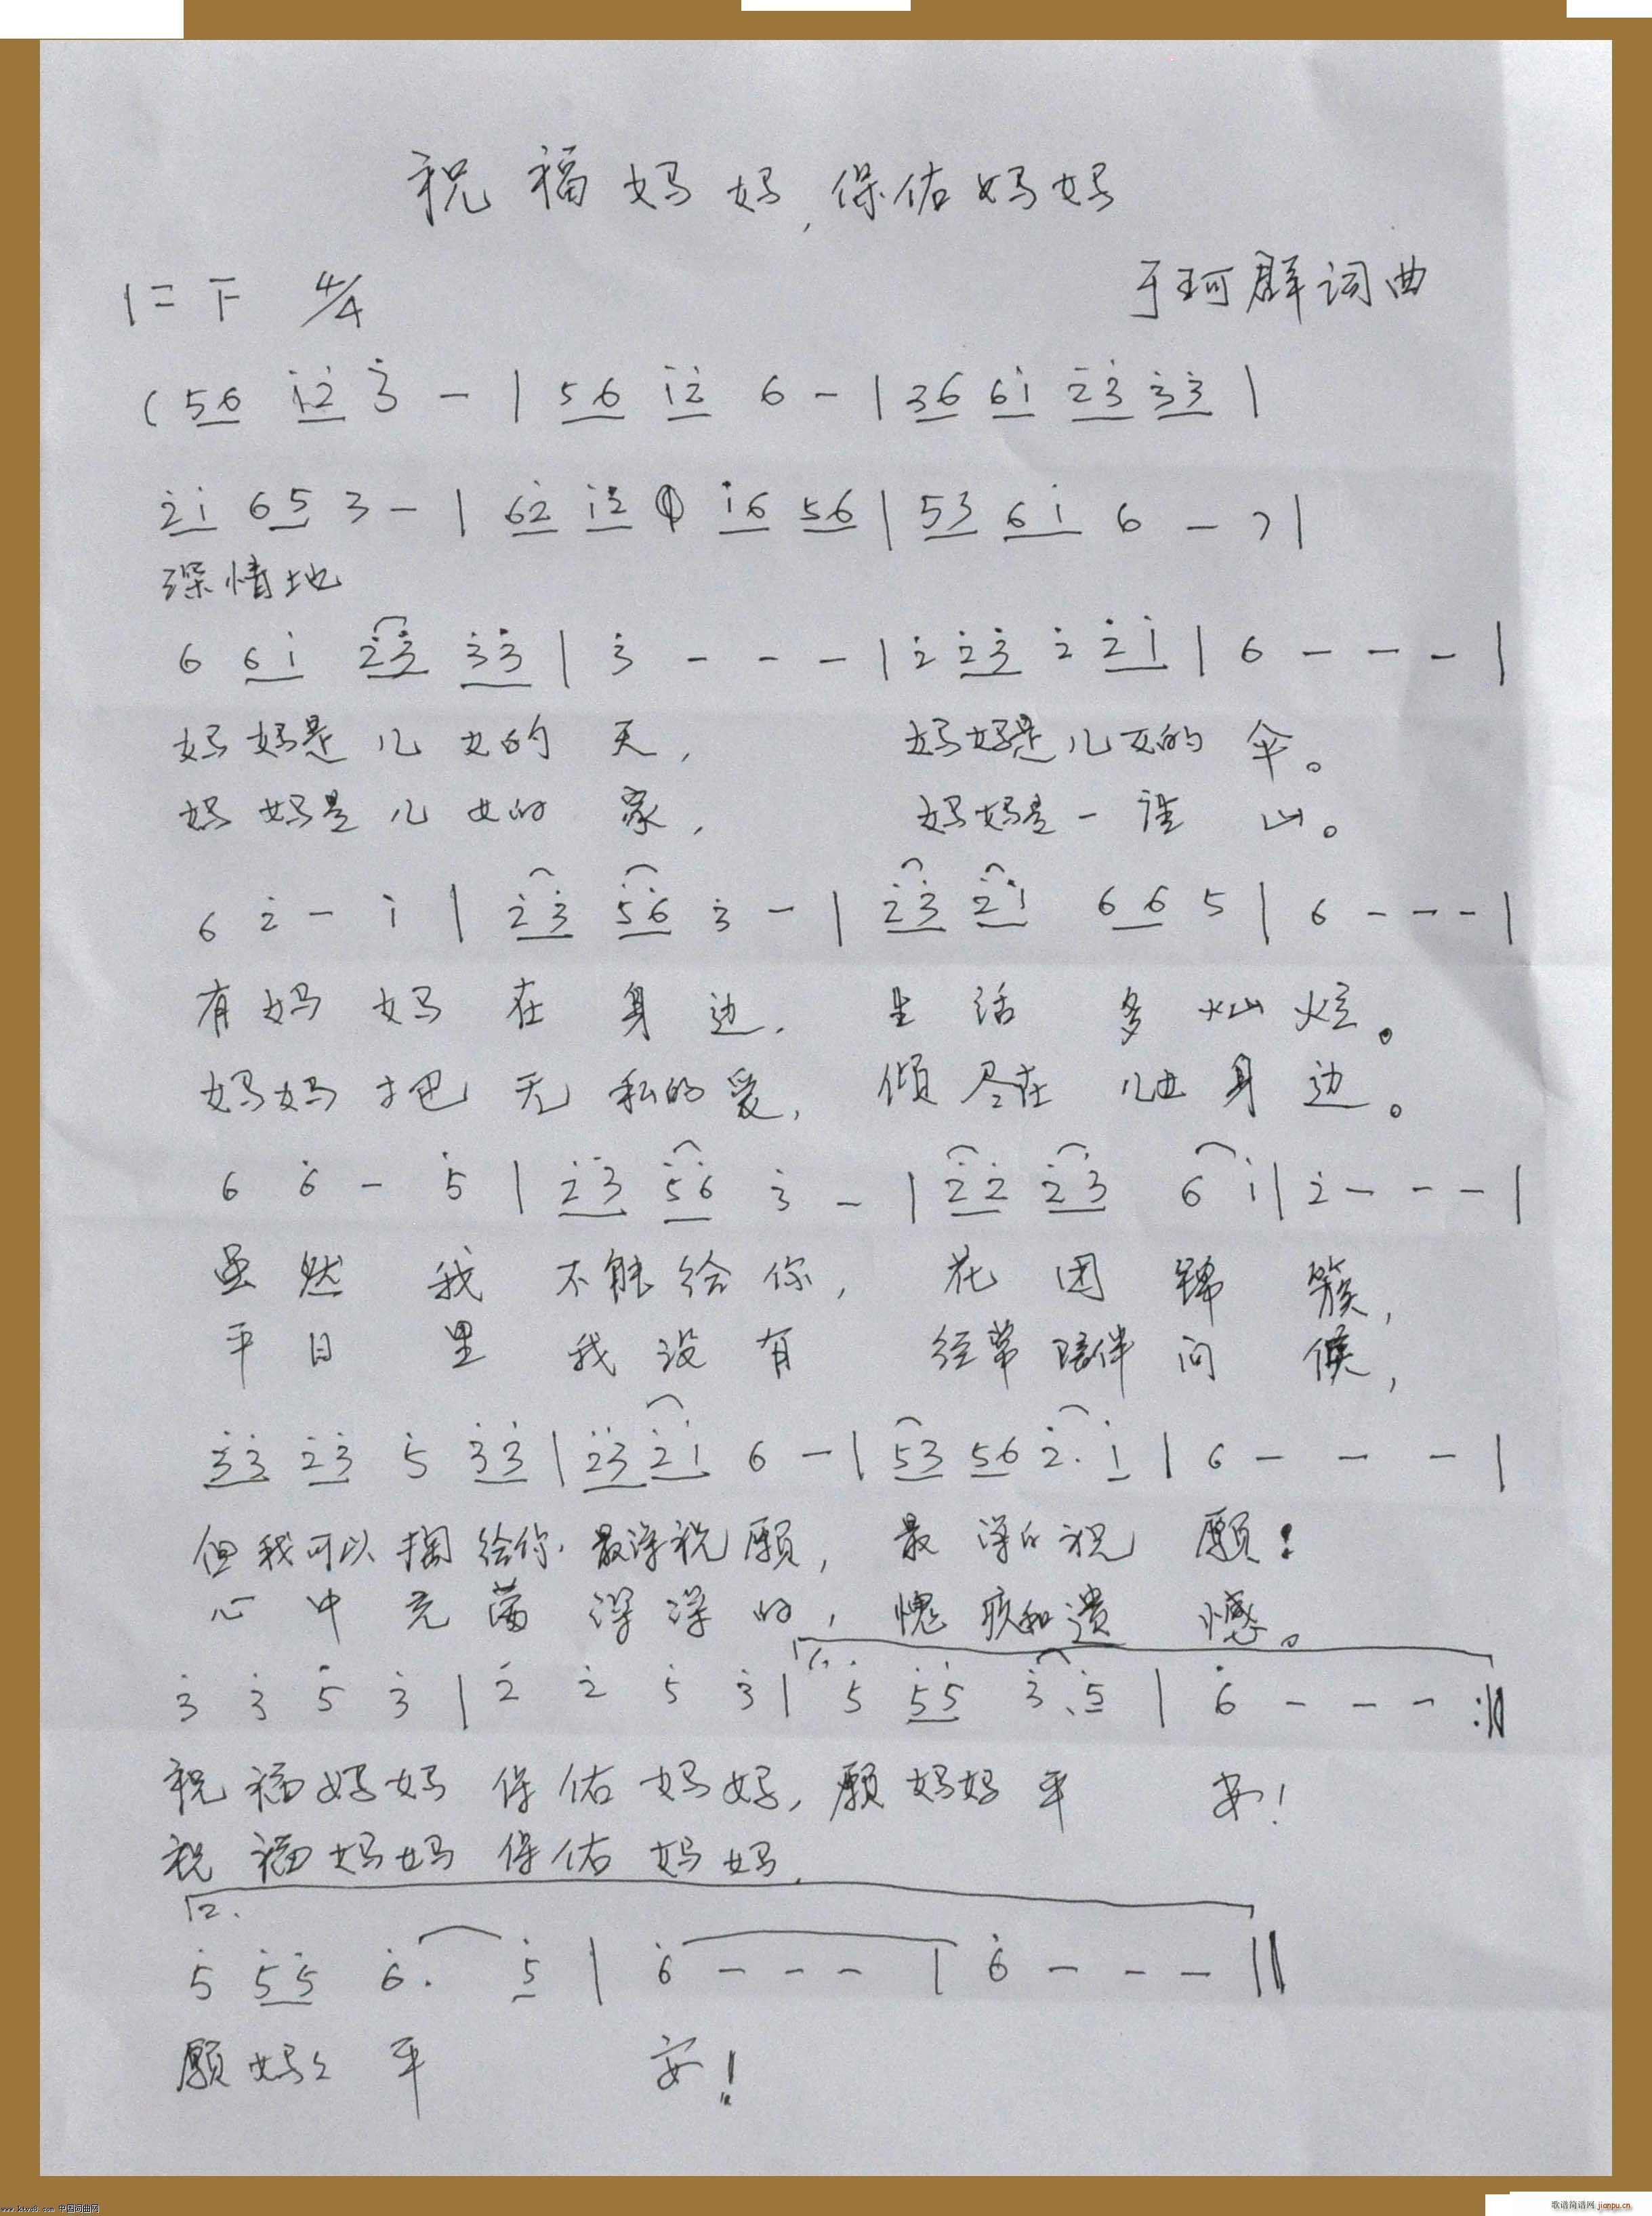 祝福妈妈,保佑妈妈
1=F 4/4 于珂群词曲
(56 i̇2̇ 3̇ - | 56 i̇2̇ 6 - | 36 6i̇ 2̇3̇ 3̇3̇ |
2̇i̇ 65 3 - | 62̇ i̇2̇ i̇6 56 | 53 6i̇ 6 - ) |
深情地
6 6i̇ 2̇3̇ 3̇3̇ | 3̇ - - - | 2̇ 2̇3̇ 2̇ 2̇i̇ | 6 - - - |
妈妈是儿女的天, 妈妈是儿女的伞。
妈妈是儿女的家, 妈妈是一座山。
6 2̇ - i̇ | 2̇3̇ 5̇6̇ 3̇ - | 2̇3̇ 2̇i̇ 66 5 | 6 - - - |
有妈妈在身边. 生活多灿烂。
妈妈把无私的爱, 倾尽在儿女身边。
6 6̇ - 5̇ | 2̇3̇ 5̇6̇ 3̇ - | 2̇2̇ 2̇3̇ 6 i̇ | 2̇ - - - |
虽然我不能给你, 花团锦簇,
平日里我没有 经常陪伴问候,
3̇3̇ 2̇3̇ 5̇ 3̇3̇ | 2̇3̇ 2̇i̇ 6 - | 53 56 2̇. i̇ | 6 - - - |
但我可以掏给你. 最深祝愿, 最深的祝愿!
心中充满深深的, 愧疚和遗憾。
3̇ 3̇ 5̇ 3̇ | 2̇ 2̇ 5̇ 3̇ | 1. 5̇ 5̇5̇ 3̇. 5̇ | 6̇ - - - :||
祝福妈妈保佑妈妈, 愿妈妈平安!
祝福妈妈保佑妈妈.
2.
5̇ 5̇5̇ 6̇. 5̇ | 6̇ - - - | 6̇ - - - ||
愿妈々平安!
www.ktvc8.com 中国词曲网
歌谱简谱网 jianpu.cn